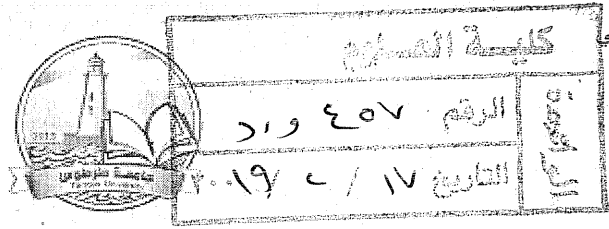 كلية العلوم
الرقم ٤٥٧ وارد
التاريخ ١٧ / ٢ / ٢٠١٩
جامعة طرطوس
Tartous University